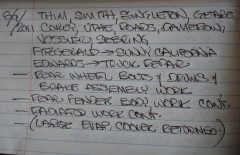 8/9/2011 THIM, SMITH, SINGLETON, GEARE
COREY, UTAE, ROADS, CAMERON,
VOSSLER, GEERING,
FITZGERALD → SUNNY CALIFORNIA
EDWARDS → TRUCK REPAIR
— REAR WHEEL BOLTS & DRUMS &
BRAKE ASSEMBLY WORK
— REAR FENDER BODY WORK CONT.
— RADIATOR WORK CONT.
— (LARGE EVAP. COOLER RETURNED)